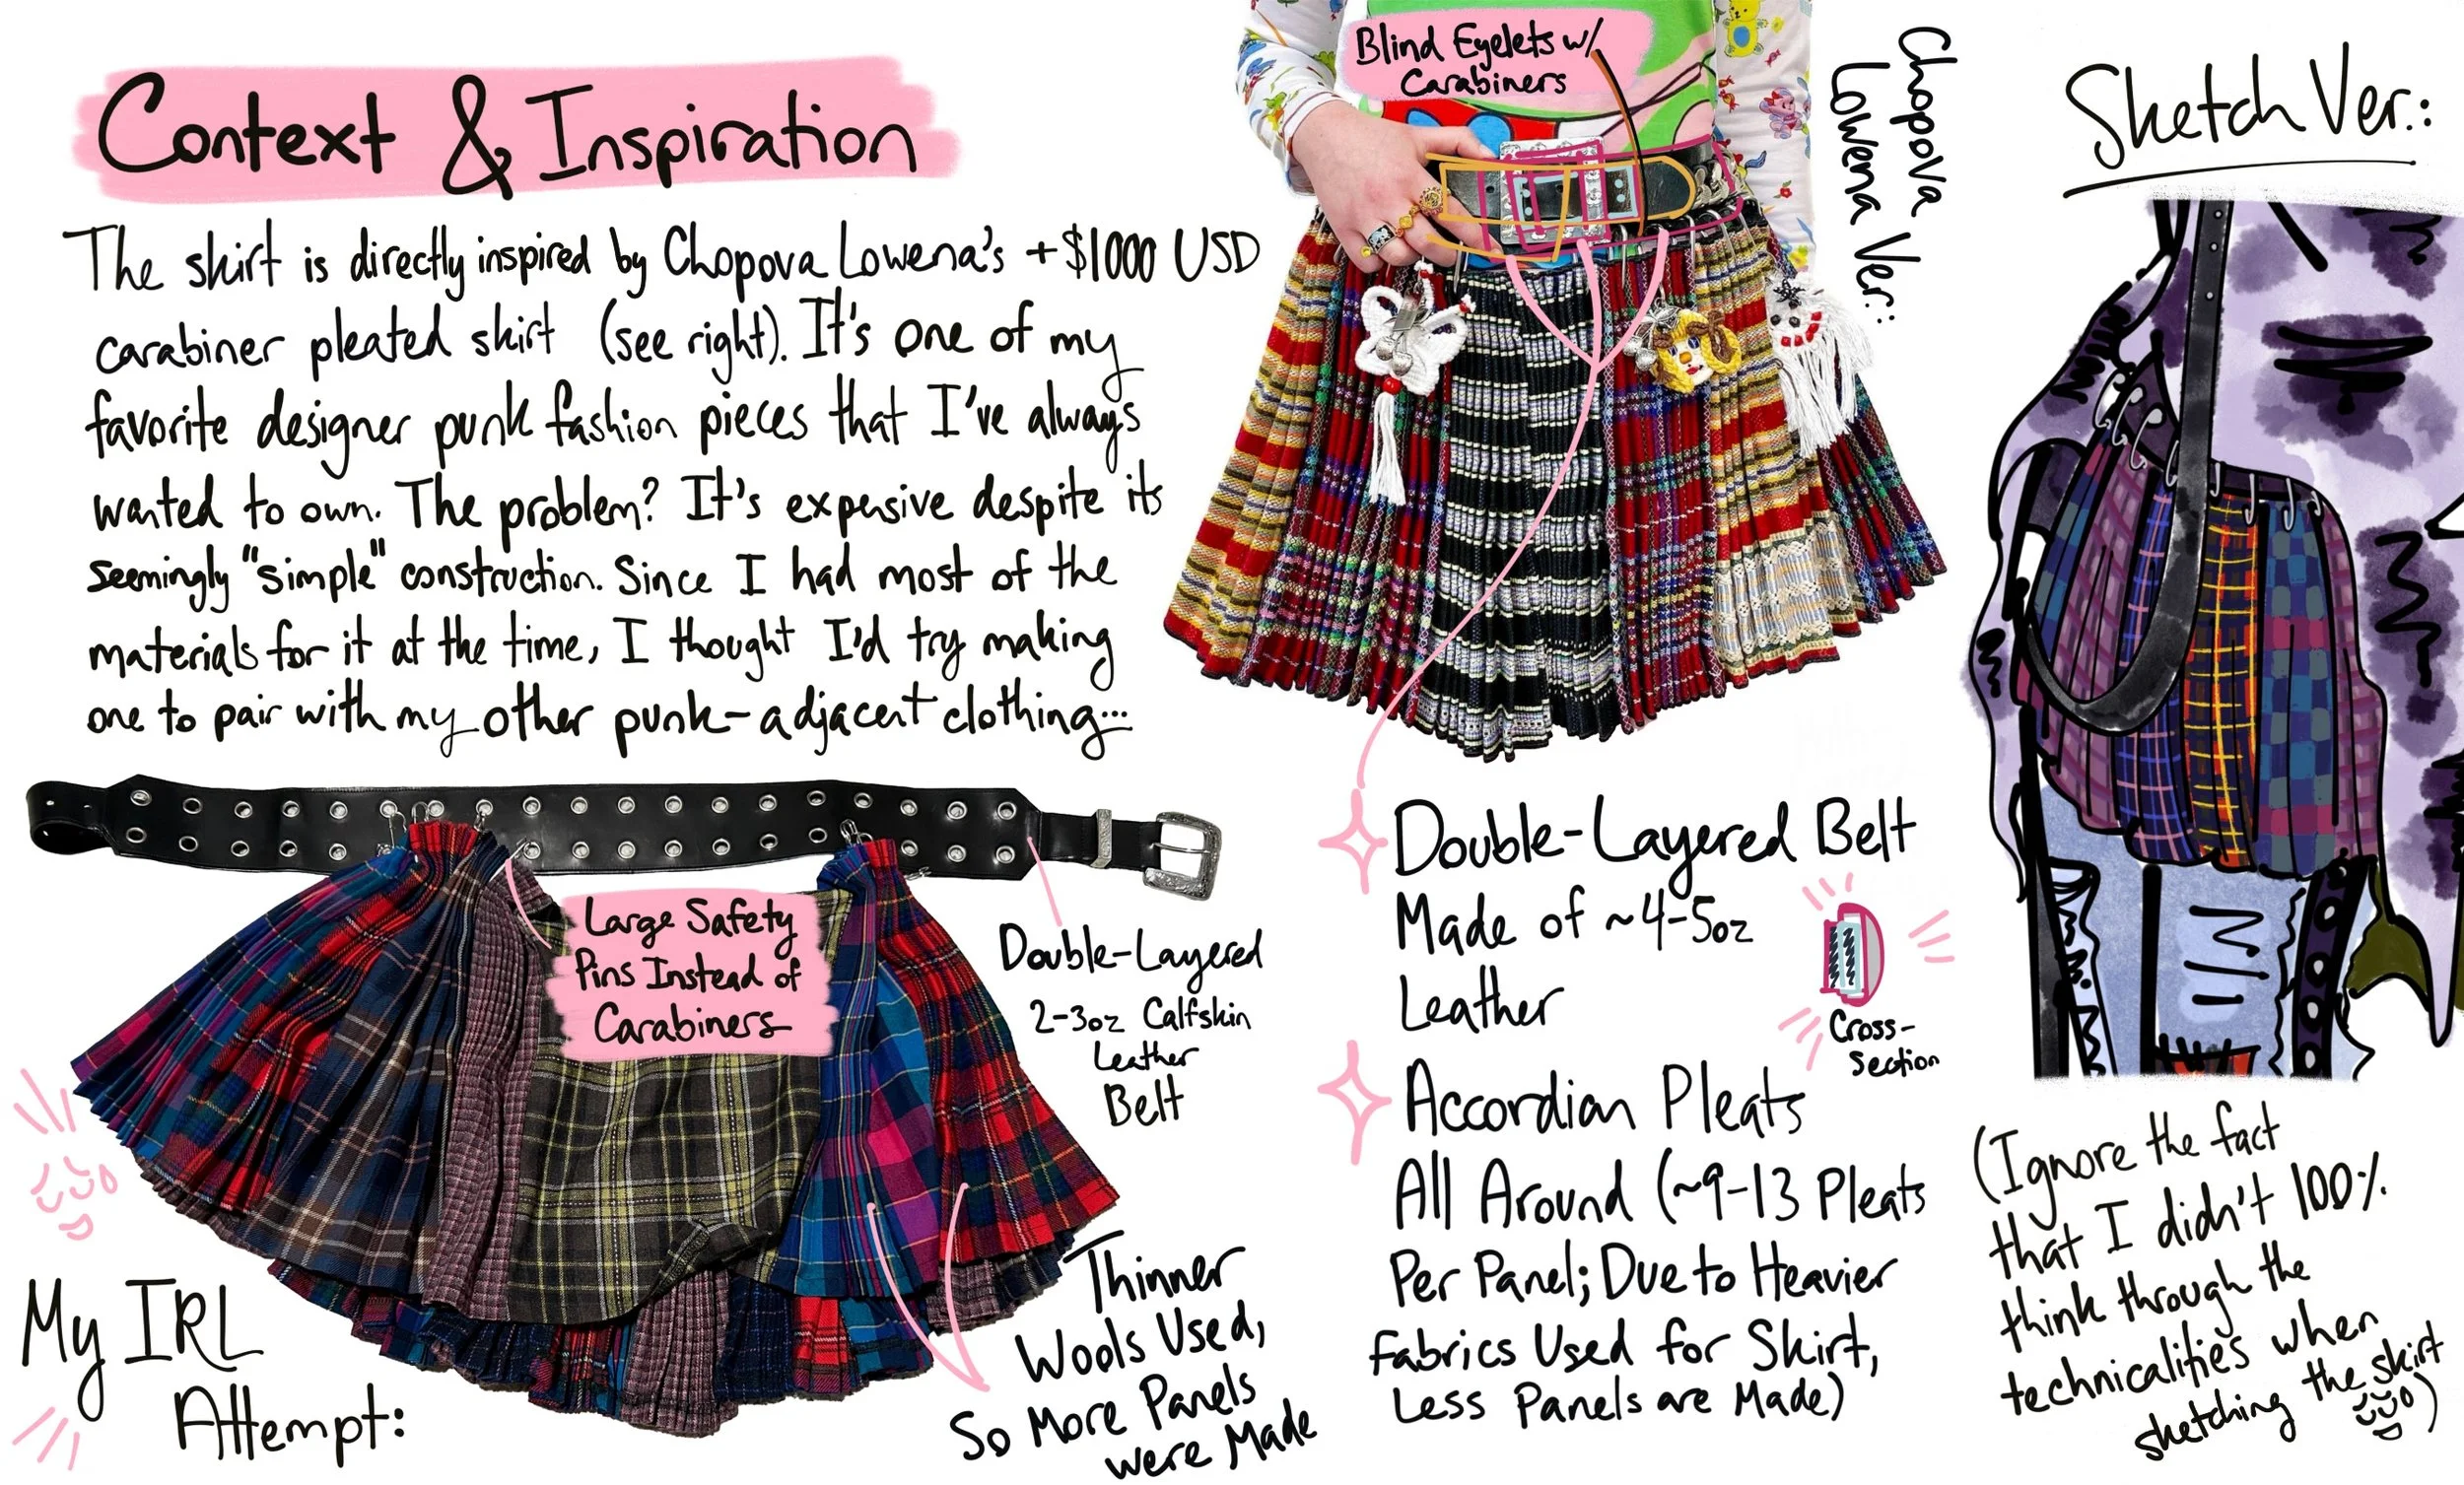 Context & Inspiration
The skirt is directly inspired by Chopova Lowena's +$1000 USD
carabiner pleated skirt (see right). It's one of my
favorite designer punk fashion pieces that I've always
wanted to own. The problem? It's expensive despite its
seemingly "simple" construction. Since I had most of the
materials for it at the time, I thought I'd try making
one to pair with my other punk-adjacent clothing...
Blind Eyelets w/
Carabiners
Chopova
Lowena Ver.:
Sketch Ver.:
Large Safety
Pins Instead of
Carabiners
Double-Layered
2-3oz Calfskin
Leather
Belt
My IRL
Attempt:
Thinner
Wools Used,
So More Panels
were Made
Double-Layered Belt
Made of ~4-5oz
Leather
Cross-
Section
Accordian Pleats
All Around (~9-13 Pleats
Per Panel; Due to Heavier
Fabrics Used for Skirt,
Less Panels are Made)
(Ignore the fact
that I didn't 100%
think through the
technicalities when
sketching the skirt
)